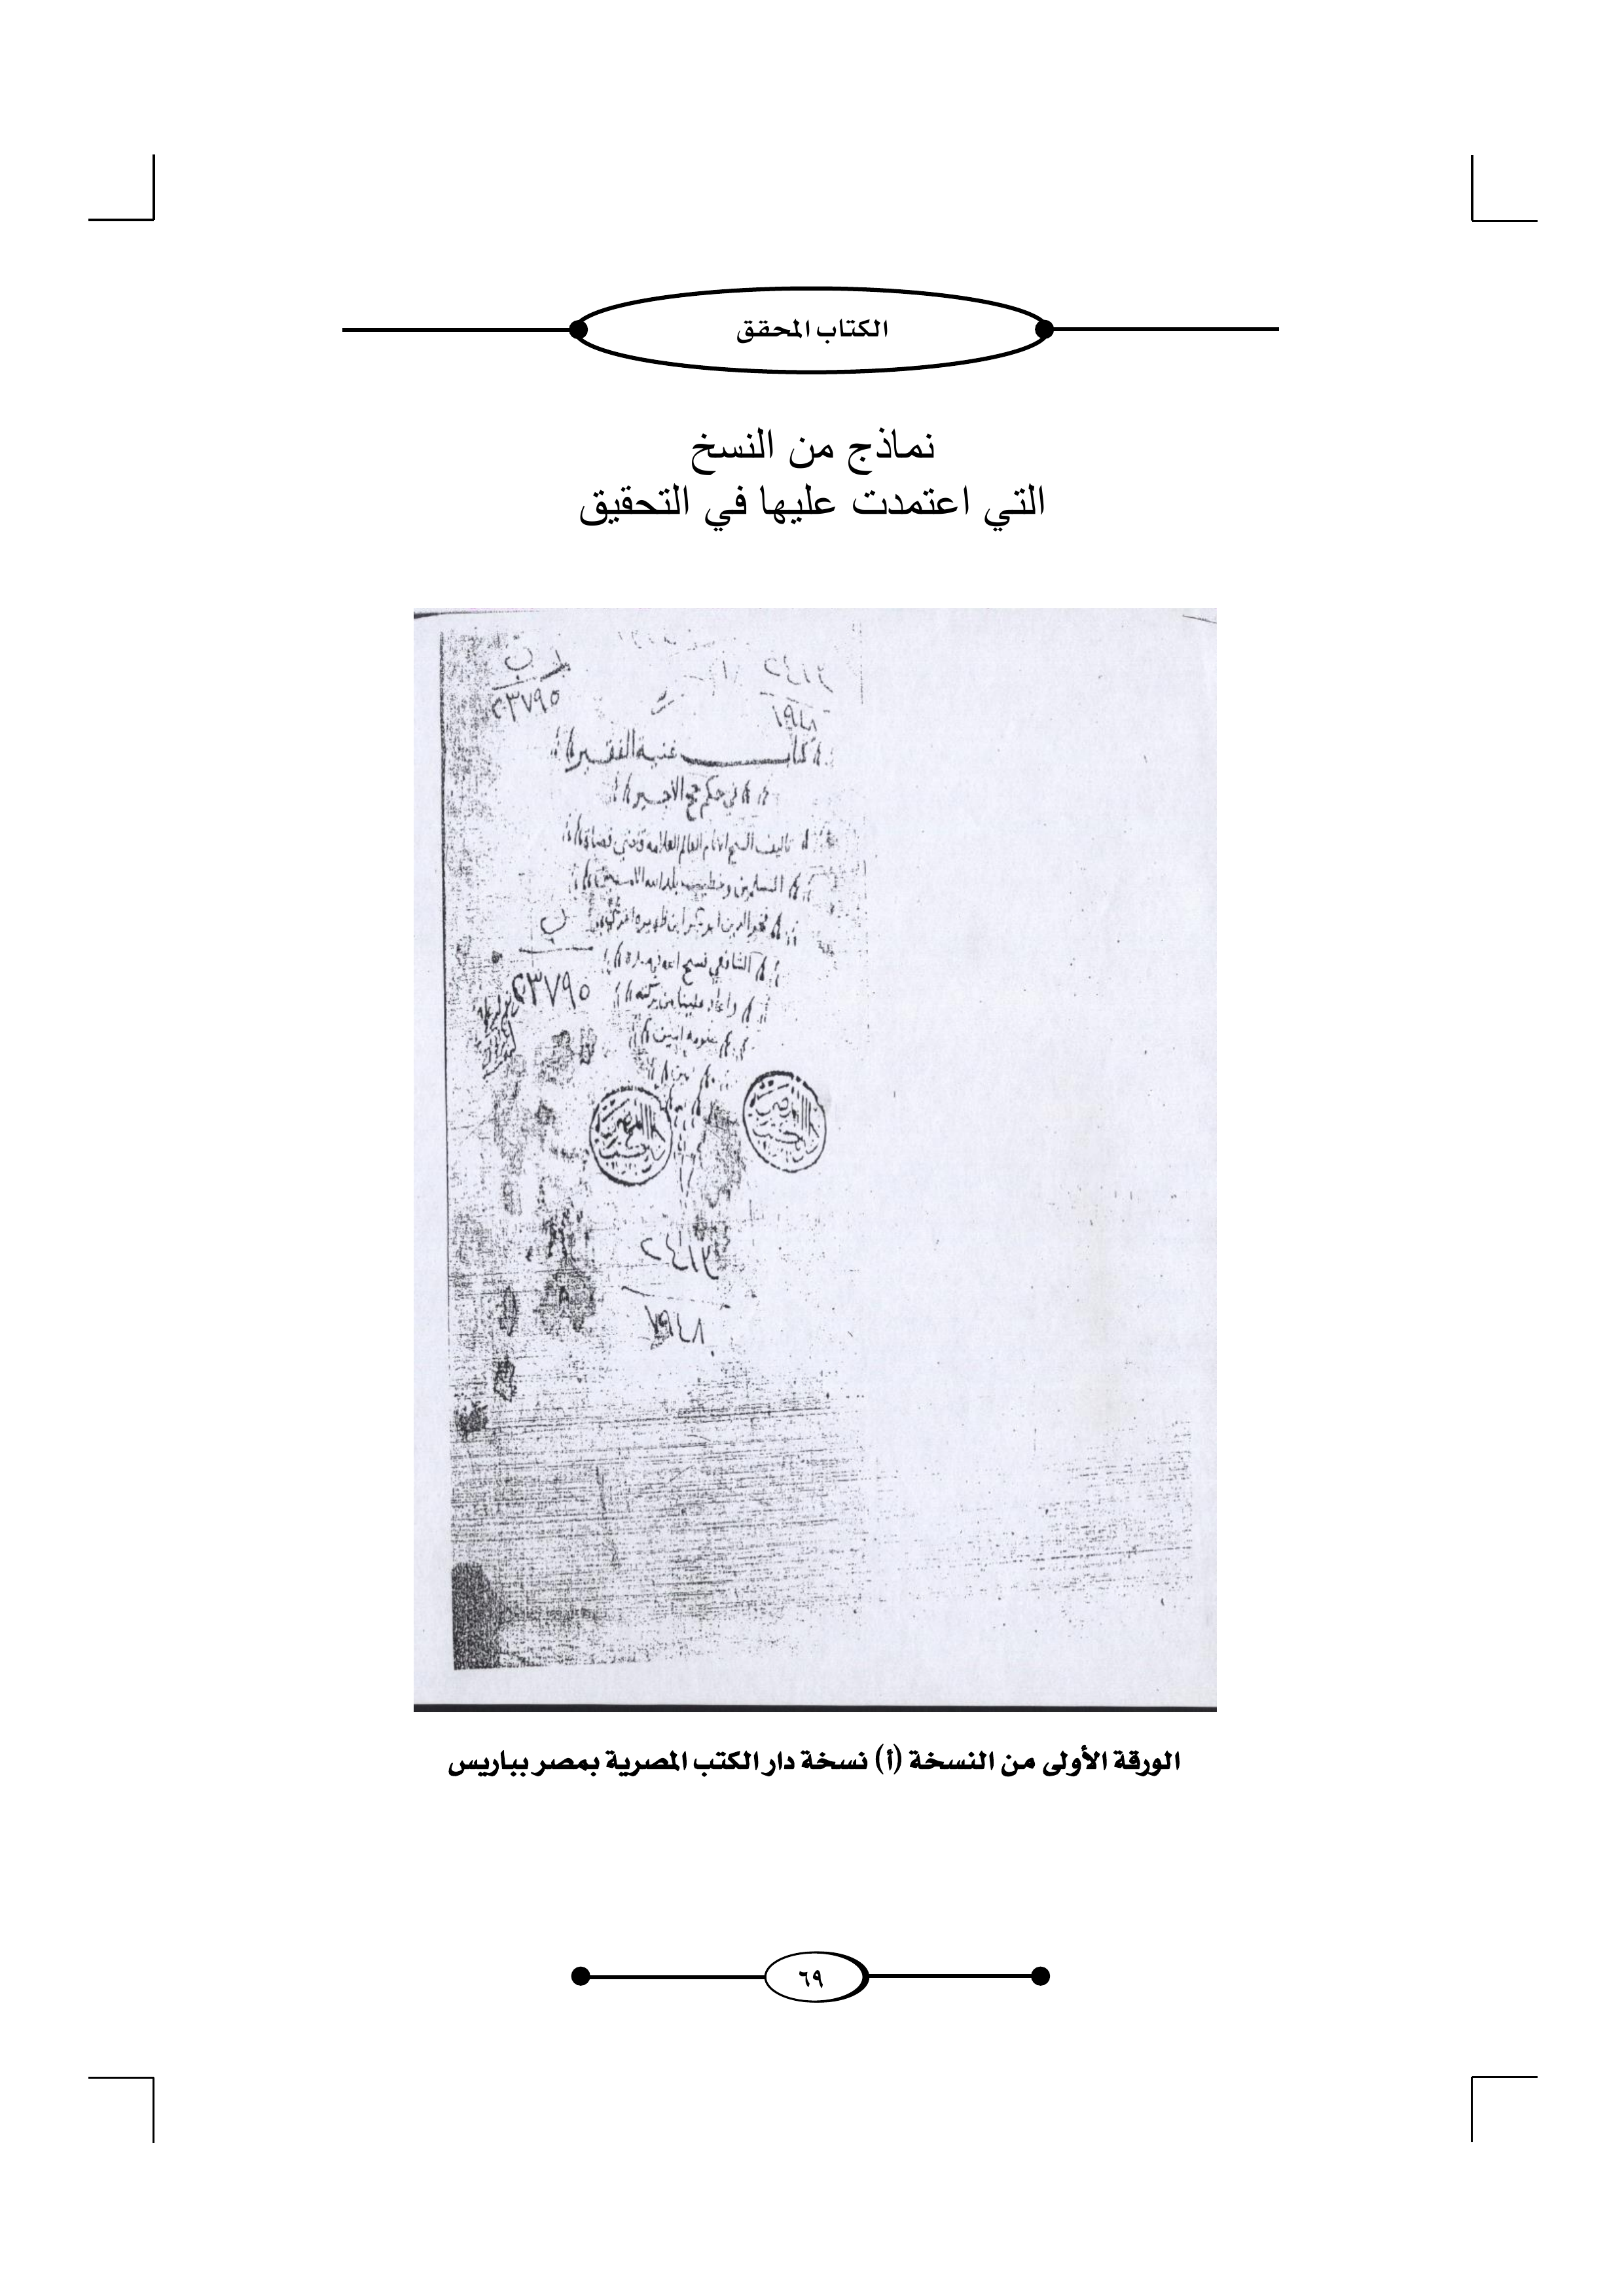 الكتاب المحقق
نماذج من النسخ
التي اعتمدت عليها في التحقيق
ب
٢٣٧٩٥
كتاب غنية الفقير
في حكم حج الأجير
تاليف الشيخ الامام العالم العلامه قاضي قضاة
المسلمين وخطيب بلد الله الامين
فخر الدين ابو بكر ابن ظهيره
الشافعي فسح الله في مدته
واعاد علينا من بركته
امين
ب
٢٣٧٩٥
الورقة الأولى من النسخة (أ) نسخة دار الكتب المصرية بمصر بباريس
٦٩